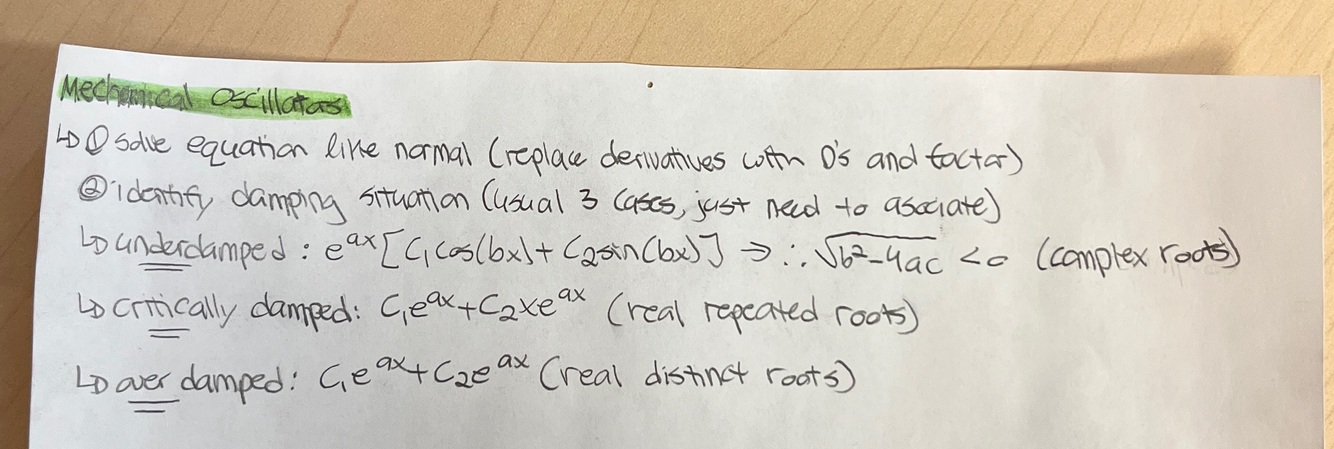 Mechanical Oscillators
↳ ① solve equation like normal (replace derivatives with D's and factor)
② identify damping situation (usual 3 cases, just need to asociate)
↳ underdamped: e^ax [C₁cos(bx) + C₂sin(bx)] ⇒ ∴ √b²-4ac < 0 (complex roots)
↳ critically damped: C₁e^ax + C₂xe^ax (real repeated roots)
↳ over damped: C₁e^ax + C₂e^ax (real distinct roots)